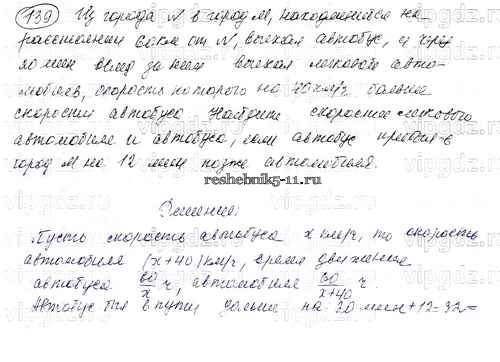 139 Из города N в город М, находящийся на
расстоянии 60 км от N, выехал автобус, а
20 мин вслед за ним выехал легковой авто-
мобиль, скорость которого на 40 км/ч больше
скорости автобуса. Найдите скорости легкового
автомобиля и автобуса, если автобус прибыл в
город М на 12 мин позже автомобиля.
reshebnik5-11.ru
Решение:
Пусть скорость автобуса x км/ч, то скорость
автомобиля (x+40) км/ч, время движения
автобуса 60/x ч, автомобиля 60/x+40 ч.
Автобус был в пути дольше на 20 мин+12=32=